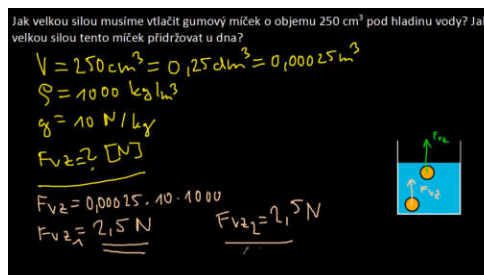 Jak velkou silou musíme vtlačit gumový míček o objemu 250 cm³ pod hladinu vody? Jak
velkou silou tento míček přidržovat u dna?
V = 250 cm³ = 0,25 dm³ = 0,00025 m³
ρ = 1000 kg/m³
g = 10 N/kg
Fvz = ? [N]
Fvz = 0,00025 · 10 · 1000
Fvz₁ = 2,5 N
Fvz₂ = 2,5 N
Fvz
Fvz